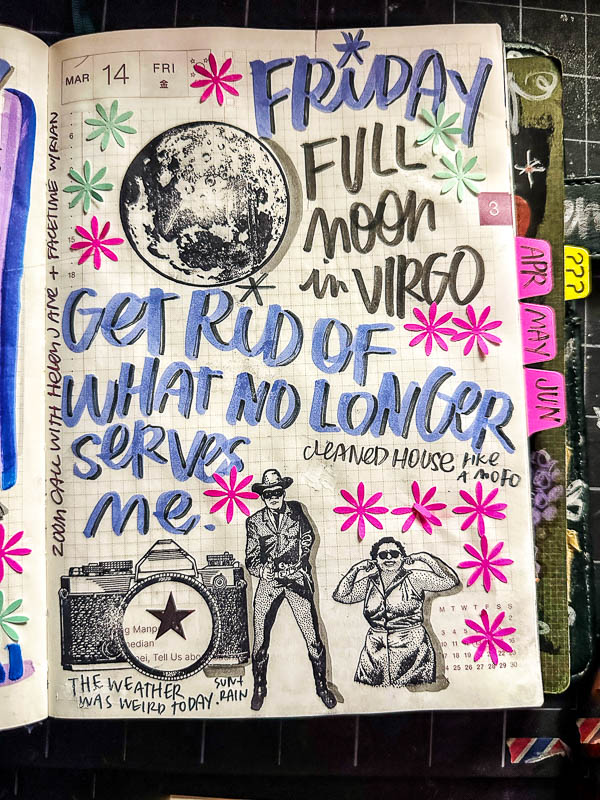 MAR 14 FRI
金
FRiDAY
FULL
moon
in VIRGO
3
6
9
12
15
18
GeT RiD OF
WHAT NO LONGeR
serves
me.
CLEANED HOUSE LIKE
A MOFO
ZOOM CALL WITH HELEN JANE + FACETIME W/RIAN
APR
MAY
JUN
???
g Manp
edian
ei, Tell Us abo
THE WEATHER
WAS WEIRD TODAY. SUN +
RAIN
M T W T F S S